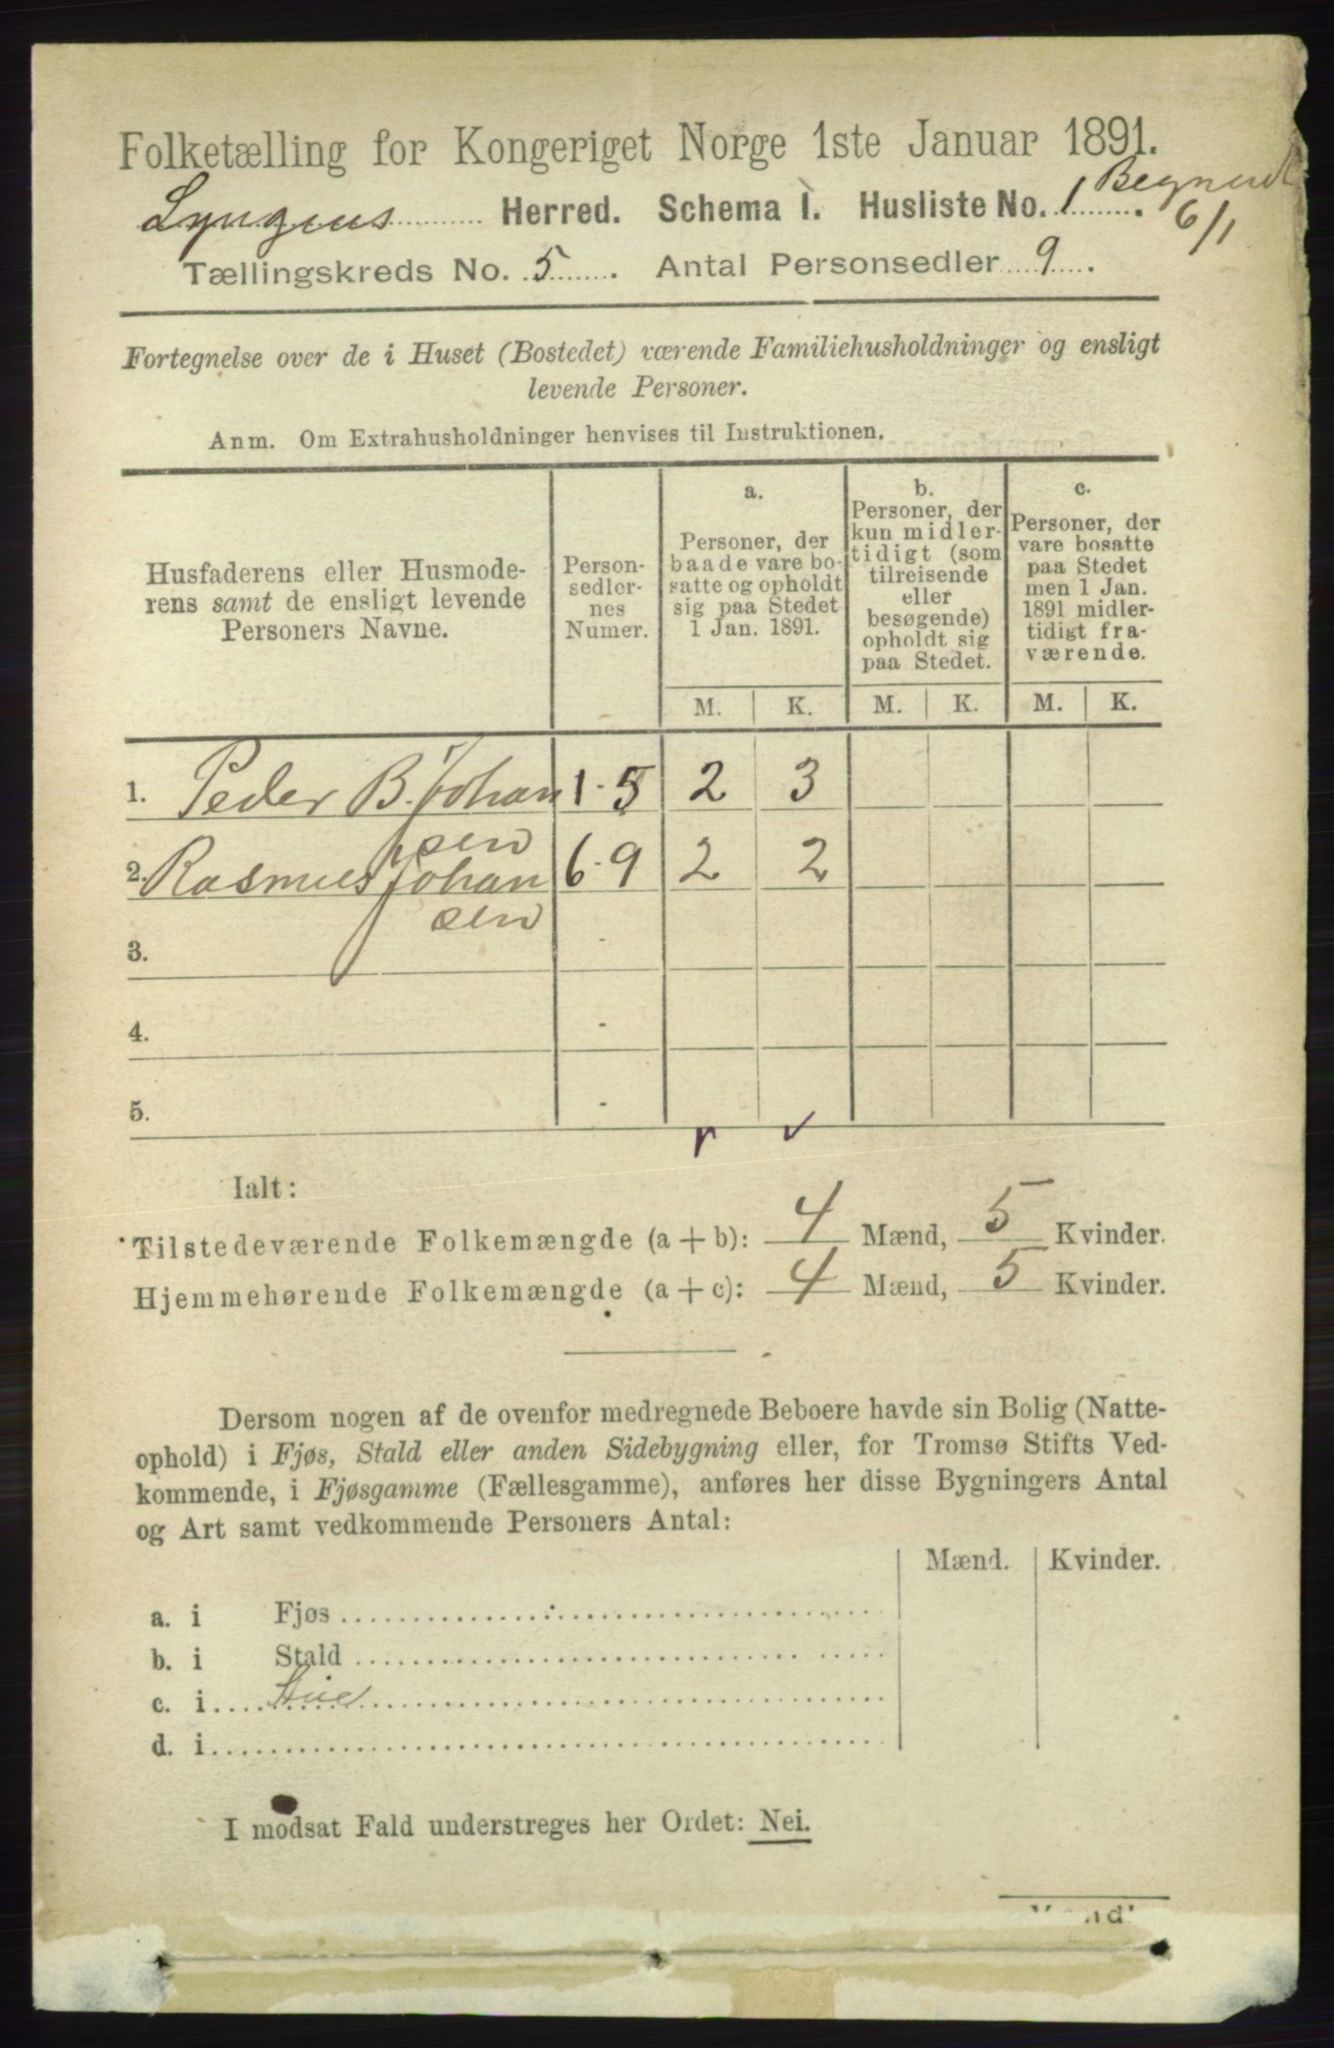 Folketælling for Kongeriget Norge 1ste Januar 1891.
Lyngens Herred. Schema I. Husliste No. 1. Begyndt 6/1
Tællingskreds No. 5. Antal Personsedler 9.
Fortegnelse over de i Huset (Bostedet) værende Familiehusholdninger og ensligt
levende Personer.
Anm. Om Extrahusholdninger henvises til Instruktionen.
Husfaderens eller Husmode-
rens samt de ensligt levende
Personers Navne.
Person-
sedler-
nes
Numer.
a.
Personer, der
baade vare bo-
satte og opholdt
sig paa Stedet
1 Jan. 1891.
b.
Personer, der
kun midler-
tidigt (som
tilreisende
eller
besøgende)
opholdt sig
paa Stedet.
c.
Personer, der
vare bosatte
paa Stedet
men 1 Jan.
1891 midler-
tidigt fra-
værende.
M. K. M. K. M. K.
1. Peder B. Johan 1-5 2 3
sen
2. Rasmus Johan 6-9 2 2
sen
3. -
4. -
5. -
Ialt:
Tilstedeværende Folkemængde (a + b): 4 Mænd, 5 Kvinder.
Hjemmehørende Folkemængde (a + c): 4 Mænd, 5 Kvinder.
Dersom nogen af de ovenfor medregnede Beboere havde sin Bolig (Natte-
ophold) i Fjøs, Stald eller anden Sidebygning eller, for Tromsø Stifts Ved-
kommende, i Fjøsgamme (Fællesgamme), anføres her disse Bygningers Antal
og Art samt vedkommende Personers Antal:
Mænd. Kvinder.
a. i Fjøs
b. i Stald
c. i
d. i
I modsat Fald understreges her Ordet: Nei.